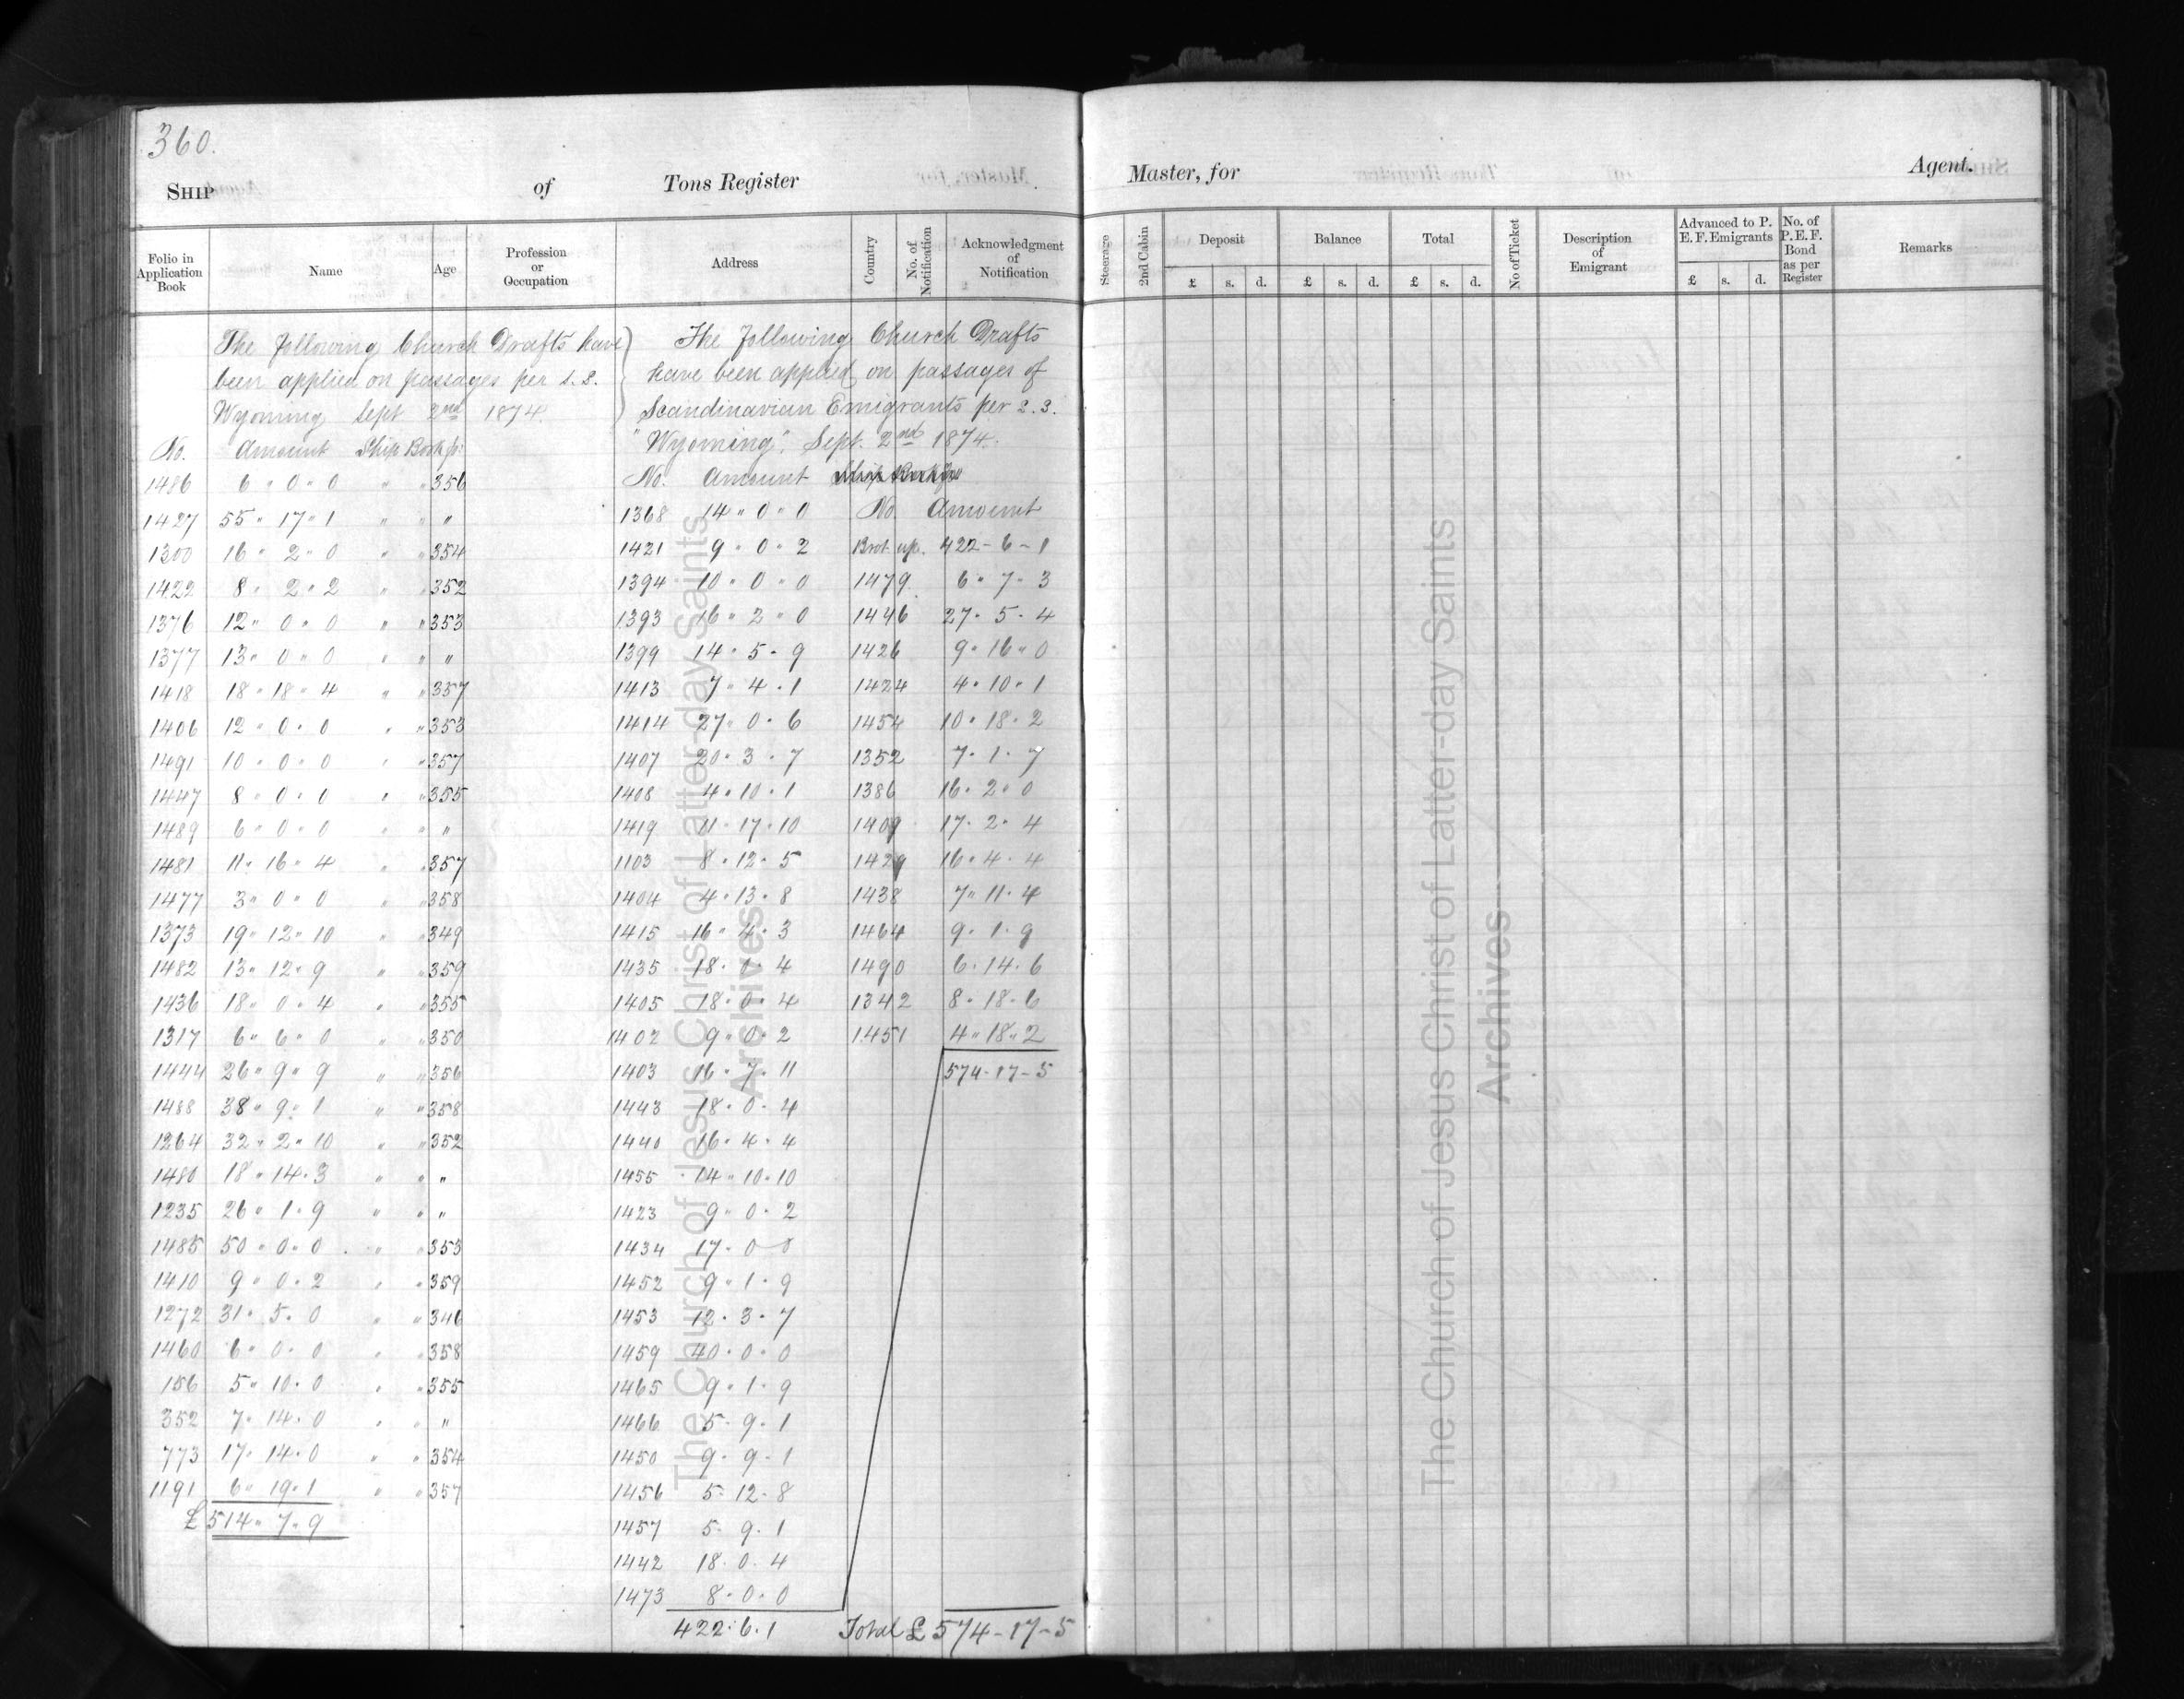 360.
SHIP of Tons Register
Folio in Application Book Name Age Profession or Occupation Address Country No. of Notification Acknowledgment of Notification
The following Church Drafts have
been applied on passages per S. S.
Wyoming Sept 2nd 1874.
No. Amount Ship Book fo:
1486 6 " 0 " 0 " " 356
1427 55 " 17 " 1 " " "
1300 16 " 2 " 0 " " 354
1422 8 " 2 " 2 " " 352
1376 12 " 0 " 0 " " 353
1377 13 " 0 " 0 " " "
1418 18 " 18 " 4 " " 357
1406 12 " 0 " 0 " " 353
1491 10 " 0 " 0 " " 357
1447 8 " 0 " 0 " " 355
1489 6 " 0 " 0 " " "
1481 11 " 16 " 4 " " 357
1477 3 " 0 " 0 " " 358
1373 19 " 12 " 10 " " 349
1482 13 " 12 " 9 " " 359
1436 18 " 0 " 4 " " 355
1317 6 " 6 " 0 " " 350
1444 26 " 9 " 9 " " 356
1488 38 " 9 " 1 " " 358
1264 32 " 2 " 10 " " 352
1480 18 " 14 " 3 " " "
1235 26 " 1 " 9 " " "
1485 50 " 0 " 0 " " 353
1410 9 " 0 " 2 " " 359
1272 31 " 5 " 0 " " 346
1460 6 " 0 " 0 " " 358
156 5 " 10 " 0 " " 355
352 7 " 14 " 0 " " "
773 17 " 14 " 0 " " 354
1191 6 " 19 " 1 " " 357
£514 " 7 " 9
The following Church Drafts
have been applied on passages of
Scandinavian Emigrants per S. S.
"Wyoming", Sept. 2nd 1874.
No. Amount
1368 14 " 0 " 0
1421 9 " 0 " 2
1394 10 " 0 " 0
1393 16 " 2 " 0
1399 14 " 5 " 9
1413 7 " 4 " 1
1414 27 " 0 " 6
1407 20 " 3 " 7
1408 4 " 10 " 1
1419 11 " 17 " 10
1103 8 " 12 " 5
1404 4 " 13 " 8
1415 16 " 4 " 3
1435 18 " 0 " 4
1405 18 " 0 " 4
1402 9 " 0 " 2
1403 16 " 7 " 11
1443 18 " 0 " 4
1440 16 " 4 " 4
1455 14 " 10 " 10
1423 9 " 0 " 2
1434 17 " 0 0
1452 9 " 1 " 9
1453 12 " 3 " 7
1459 40 " 0 " 0
1465 9 " 1 " 9
1466 5 " 9 " 1
1450 9 " 9 " 1
1456 5 " 12 " 8
1457 5 " 9 " 1
1442 18 " 0 " 4
1473 8 " 0 " 0
422 " 6 " 1
No Amount
Brot. up. 422 - 6 - 1
1479 6 " 7 " 3
1446 27 " 5 " 4
1426 9 " 16 " 0
1424 4 " 10 " 1
1454 10 " 18 " 2
1352 7 " 1 " 7
1386 16 " 2 " 0
1409 17 " 2 " 4
1429 16 " 4 " 4
1438 7 " 11 " 4
1464 9 " 1 " 9
1490 6 " 14 " 6
1342 8 " 18 " 6
1451 4 " 18 " 2
574 - 17 - 5
Total £ 574 - 17 - 5
Master, for Agent.
Steerage 2nd Cabin Deposit Balance Total No of Ticket Description of Emigrant Advanced to P. E. F. Emigrants No. of P. E. F. Bond as per Register Remarks
£ s. d. £ s. d. £ s. d. £ s. d.
The Church of Jesus Christ of Latter-day Saints
Archives
The Church of Jesus Christ of Latter-day Saints
Archives